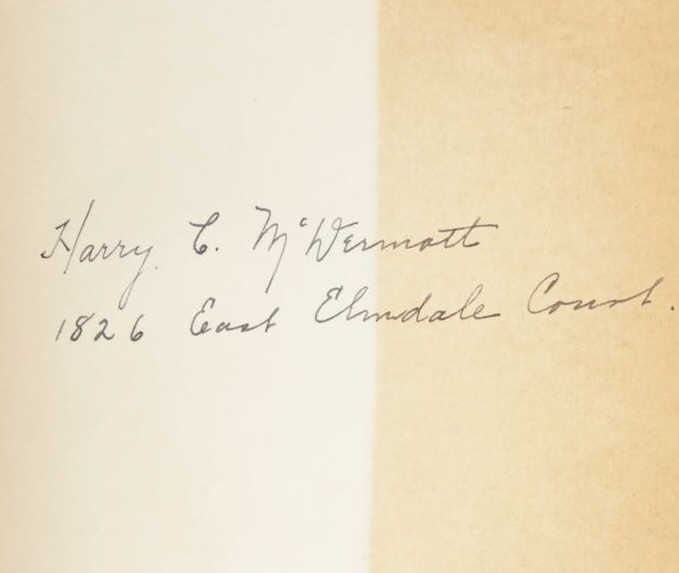 Harry C. McDermott
1826 East Elmdale Court.